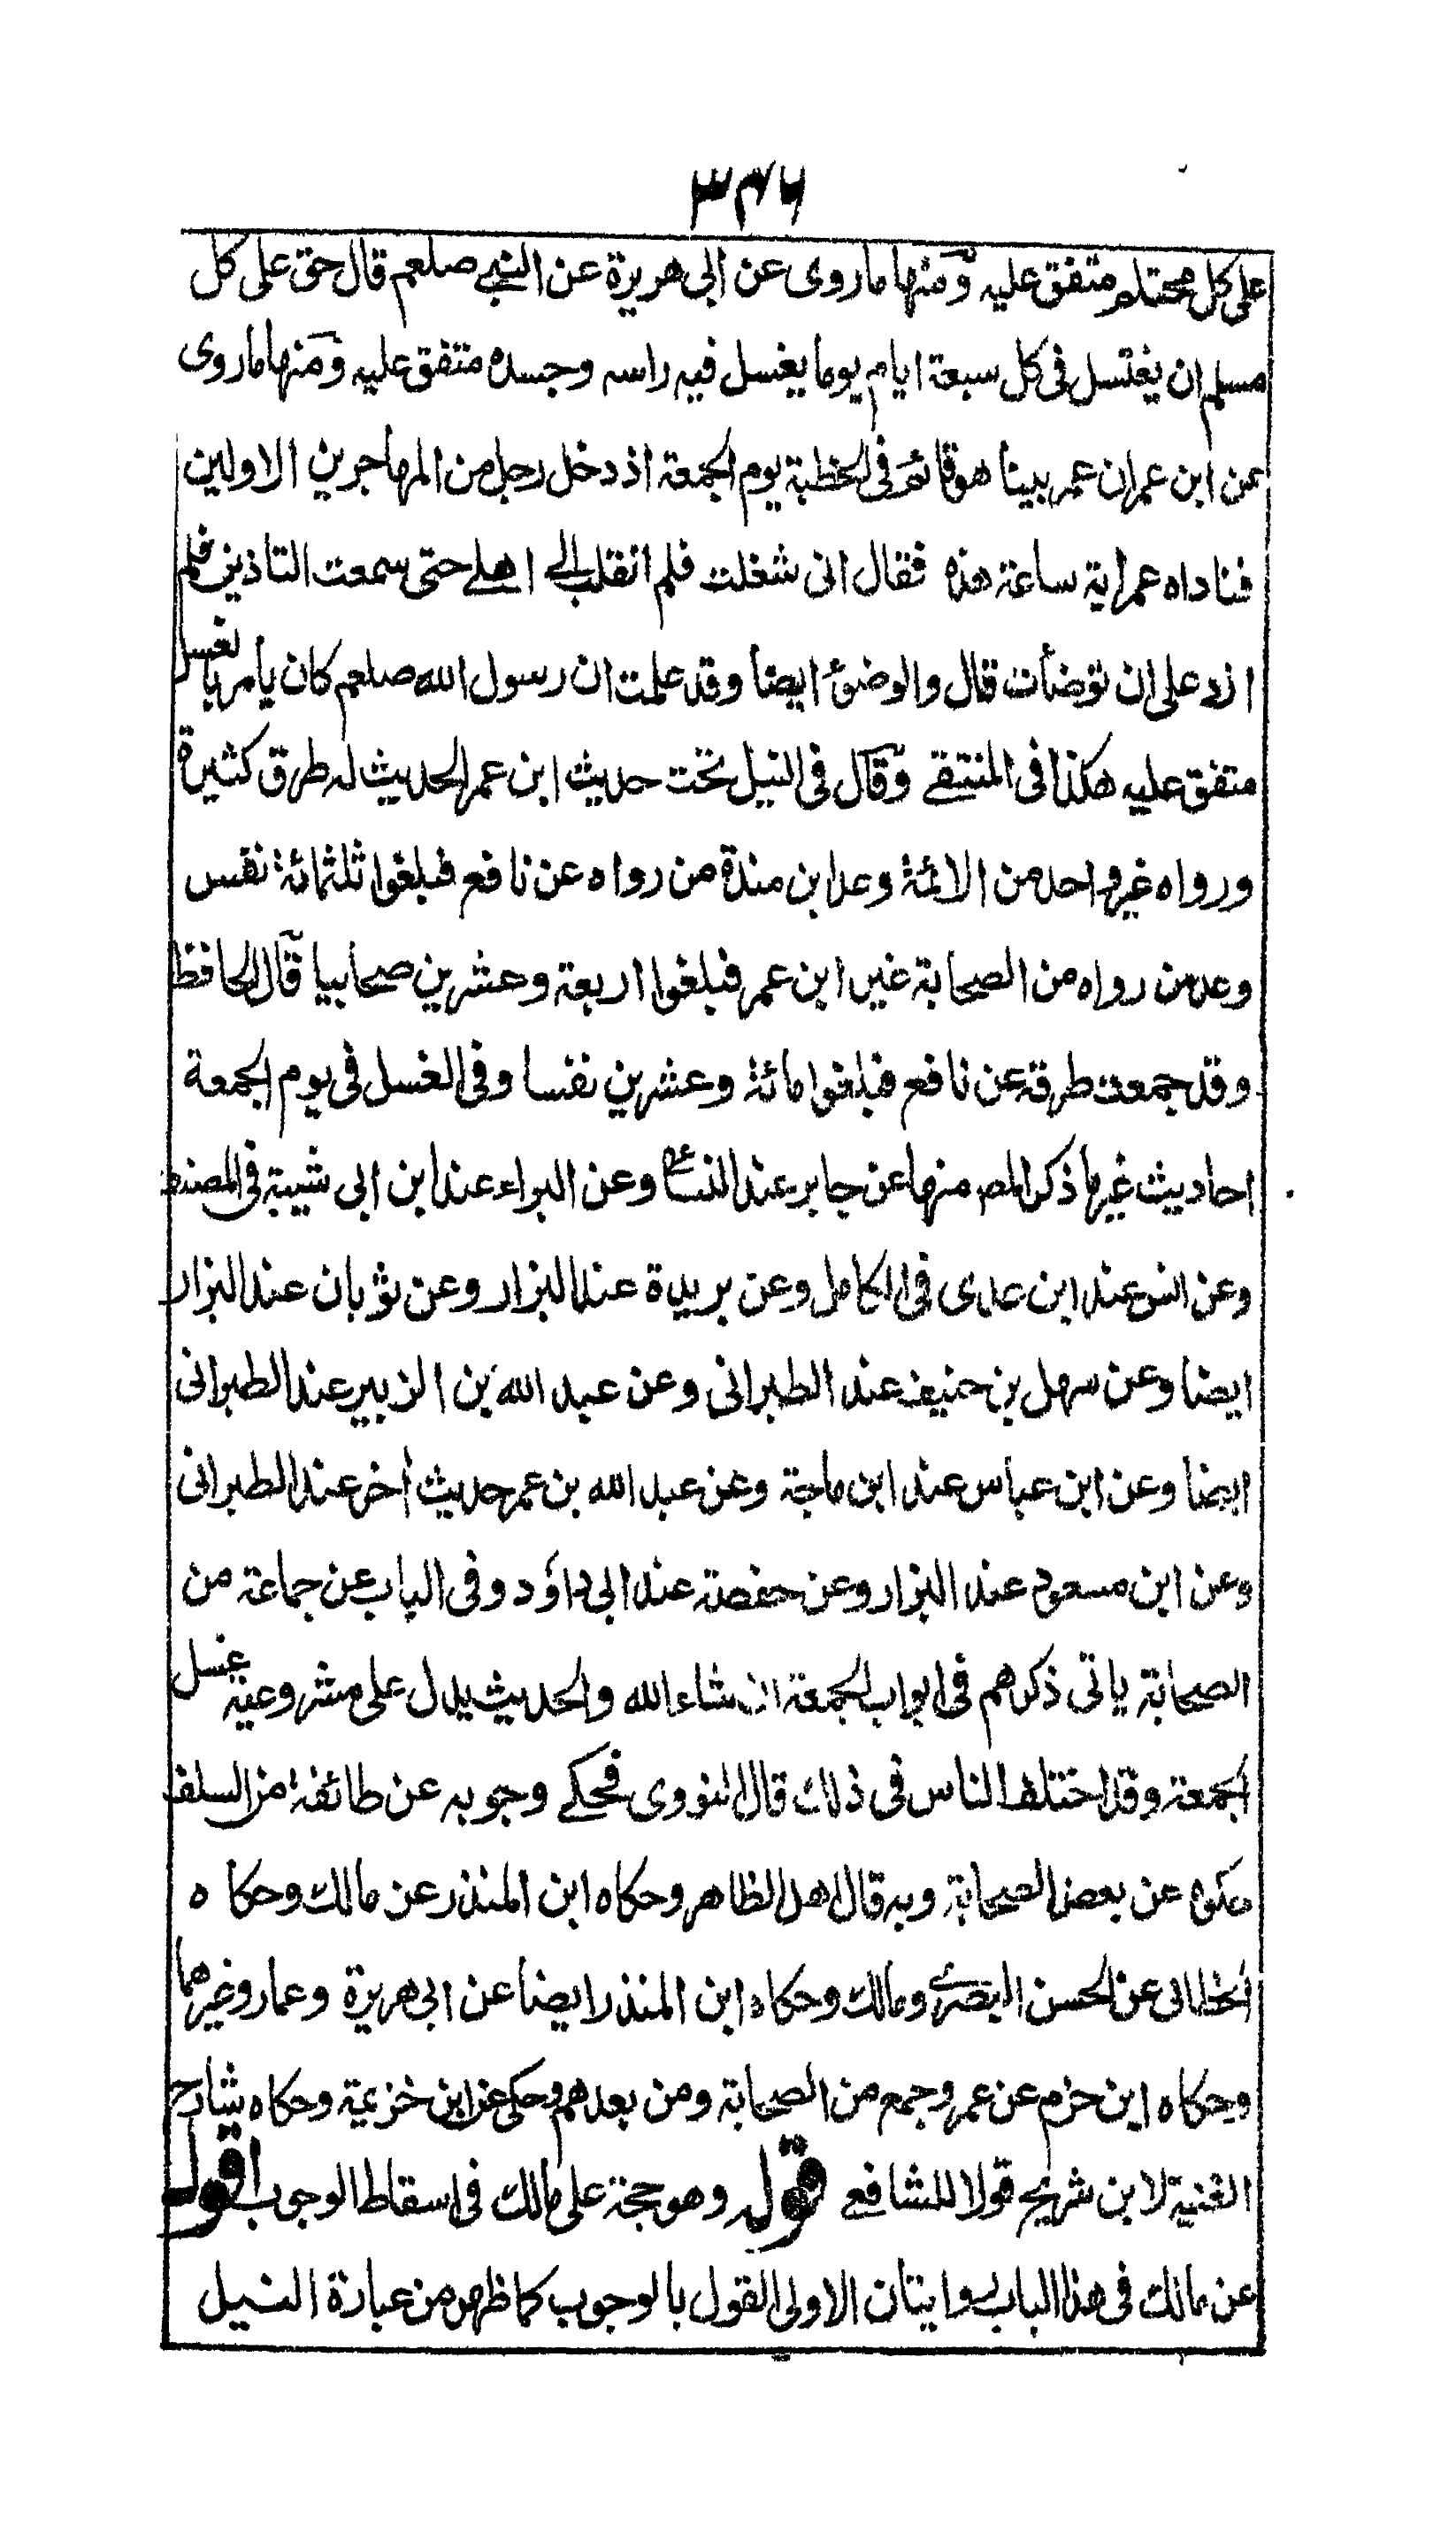 ۳۴۶
على كل محتلم متفق عليه ومنها ماروى عن ابى هريرة عن النبي صلعم قال حق على كل
مسلم ان يغتسل فى كل سبعة ايام يوما يغسل فيه راسه وجسده متفق عليه ومنها ماروى
عن ابن عمران عمر بينا هو قائم فى الخطبة يوم الجمعة اذ دخل رجل من المهاجرين الاولين
فناداه عمر اية ساعة هذه فقال انى شغلت فلم انقلب الى اهلے حتى سمعت التاذين فلم
ازد على ان توضأت قال والوضؤ ايضا وقد علمت ان رسول الله صلعم كان يأمر بالغسل
متفق عليه هكذا فى المنتقے وقال فى النيل تحت حديث ابن عمر الحديث له طرق كثيرة
ورواه غير واحد من الائمة وعد ابن مندة من رواه عن نافع فبلغوا ثلثمائة نفس
وعد من رواه من الصحابة غير ابن عمر فبلغوا اربعة وعشرين صحابيا قال الحافظ
وقد جمعت طرقه عن نافع فبلغوا مائة وعشرين نفسا وفى الغسل فى يوم الجمعة
احاديث غيرها ذكر المص منها عن جابر عند النسائى وعن البراء عند ابن ابى شيبة فى المصنف
وعن انس عند ابن عدى فى الكامل وعن بريدة عند البزار وعن ثوبان عند البزار
ايضا وعن سهل بن حنيف عند الطبرانى وعن عبد الله بن الزبير عند الطبرانى
ايضا وعن ابن عباس عند ابن ماجة وعن عبد الله بن عمر حديث أخر عند الطبرانى
وعن ابن مسعود عند البزار وعن حفصة عند ابى داؤد وفى الباب عن جماعة من
الصحابة ياتى ذكرهم فى ابواب الجمعة ان شاء الله والحديث يدل على مشروعية غسل
الجمعة وقد اختلف الناس فى ذلك قال النووى فحكے وجوبه عن طائفة من السلف
حكوه عن بعض الصحابة وبه قال اهل الظاهر وحكاه ابن المنذر عن مالك وحكاه
الخطابى عن الحسن البصرے ومالك وحكاه ابن المنذر ايضا عن ابى هريرة وعمار وغيرهما
وحكاه ابن حزم عن عمر وجمع من الصحابة ومن بعدهم وحكى عن ابن خزيمة وحكاه شارح
الغنية لابن شريح قولا للشافعے قوله وهو حجة على مالك فى اسقاط الوجوب اقول
عن مالك فى هذا الباب روايتان الاولى القول بالوجوب كما ظهر من عبارة النيل